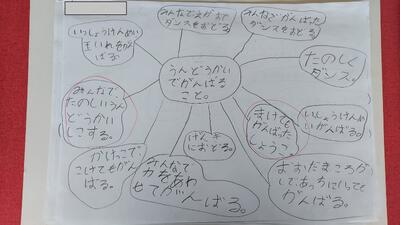 うんどうかい
でがんばる
こと。
みんなでえがおで
ダンスをおどる
みんなでがんばった
ダンスをおどる
たのしく
ダンス。
いっしょうけんめい
がんばる。
まけても
がんばった
しょうこ
おおだまころがし
で、あっちにいっても
がんばる。
げんキ
におどる。
みんなで
力をあわ
せてがんばる。
かけっこで
こけてもがん
ばる。
みんなで
たのしいうん
どうかい
にする。
いっしょうけんめい
玉いれをがん
ばる